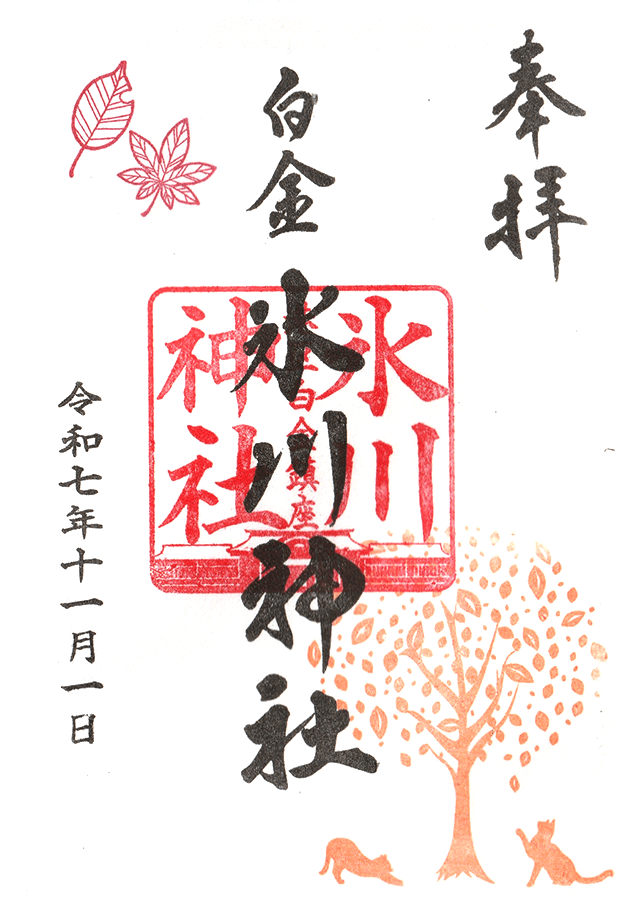 奉拝
白金
氷川神社
氷川
神社
白金鎮座
令和七年十一月一日